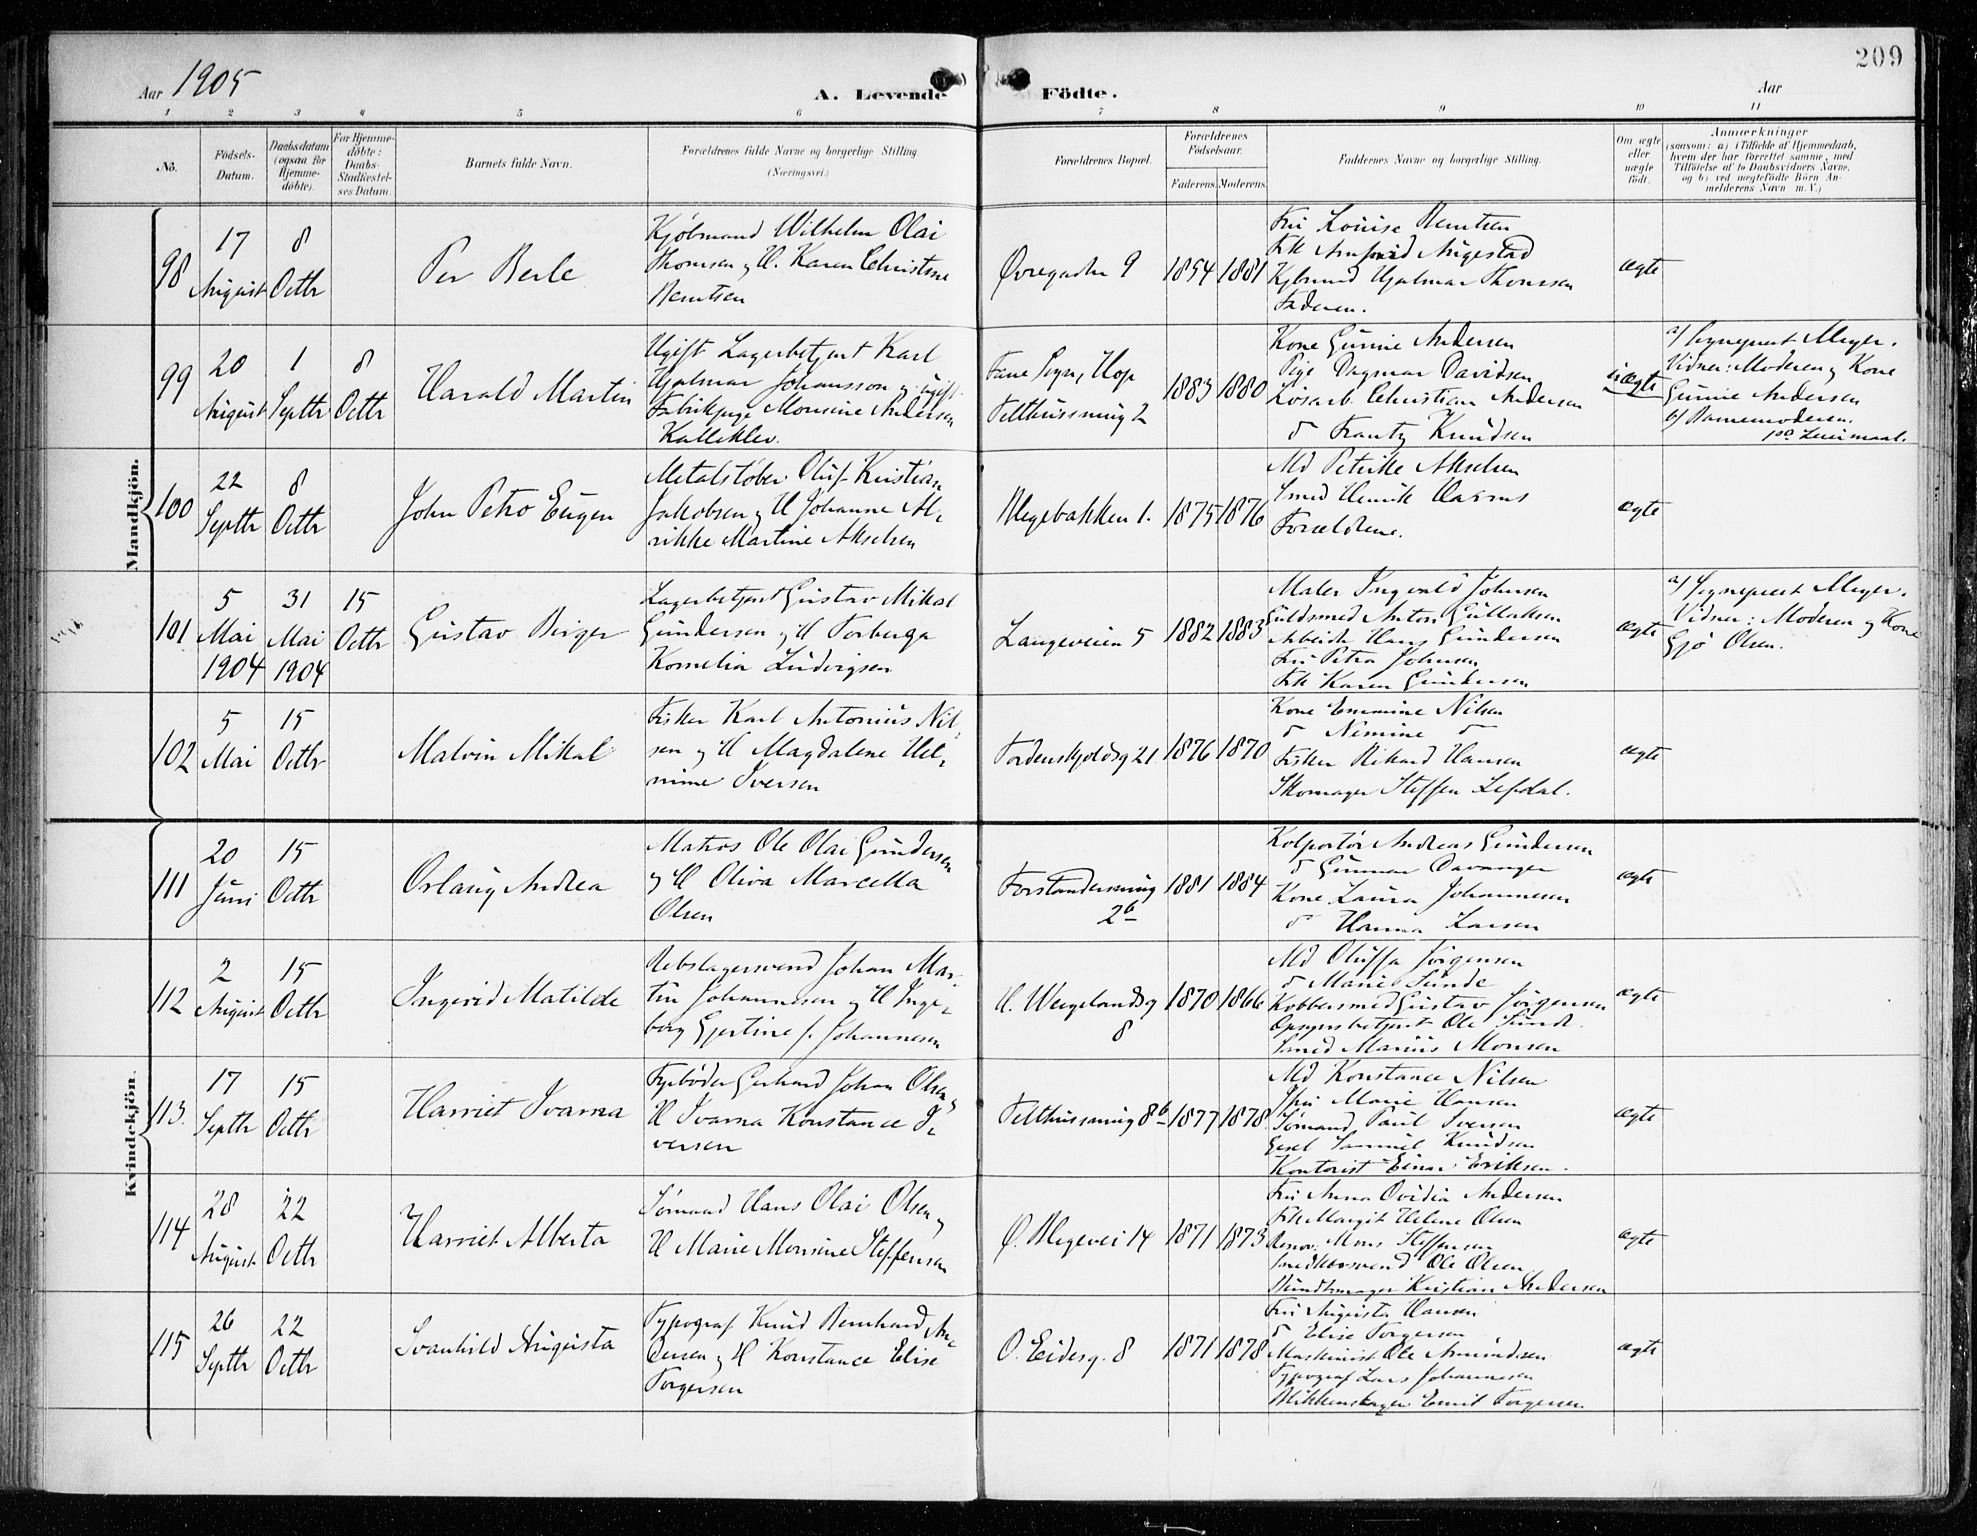 209
Aar 1905
A. Levende Födte.
Aar
1 2 3 4 5 6 7 8 9 10 11
No.
Födsels-Datum.
Daabsdatum (ogsaa för Hjemme-döbte).
For Hjemme-döbte: Daabs-Stadfæstel-ses Datum.
Barnets fulde Navn.
Forældrenes fulde Navne og borgerlige Stilling (Næringsvei.)
Forældrenes Bopæl.
Forældrenes Födselsaar.
Faderens. Moderens.
Faddernes Navne og borgerlige Stilling.
Om ægte eller uægte födt.
Anmærkninger
(saasom: a) i Tilfælde af Hjemmedaab,
hvem der har forrettet samme, med
Tilföielse af to Daabsvidners Navne,
og b) ved uægtefödte Börn An-
melderens Navn m. V.)
Mandkjön.
98
17 August
8 Octbr
Per Berle
Kjøbmand Wilhelm Olai
Thomsen og H. Karen Christine
Berntsen
Øvregaden 9
1854
1881
Fru Louise Berntsen
Frk Arnfrid Augestad
Kjbmand Hjalmar Thomsen
Faderen.
ægte
99
20 August
1 Septbr
8 Octbr
Harald Martin
Ugift Lagerbetjent Karl
Hjalmar Johansson og ugift
Fabrikpige Monsine Andersen
Kalleklev.
Fane Sogn, Hop
Telthussmug 2
1883
1880
Kone Gunine Andersen
Pige Dagmar Davidsen
Løsarb. Christian Andersen
do Frantz Knudsen
uægte
a/ Sognepræst Meyer.
Vidner: Moderen og Kone
Gunine Andersen
b/ Barnemoderen.
1ste Leiermaal.
100
22 Septbr
8 Octbr
John Petro Eugen
Metalstøber Oluf Kristian
Jakobsen og H Johanne Al-
rikke Martine Akselsen
Blegebakken 1.
1875
1876
Md Petrike Akselsen
Smed Henrik
Forældrene.
ægte
101
5 Mai 1904
31 Mai 1904
15 Octbr
Gustav Birger
Lagerbetjent Gustav Mikal
Gundersen og H Torberga
Kornelia Ludvigsen
Langeveien 5
1882
1883
Maler Ingvald Johnsen
Guldsmed Anton Gullaksen
Arbeider Hans Gundersen
Fru Petra Johnsen
Frk Karen Gundersen
ægte
a/ Sognepræst Meyer.
Vidner: Moderen og Kone
Gjø Olsen.
102
5 Mai
15 Octbr
Malvin Mikal
Fisker Karl Antonius Nil-
sen og H Magdalene Hel-
mine Iversen
Tordenskjoldsg 21
1876
1870
Kone Emmine Nilsen
do Nimine do
Fisker Rikard Hansen
Skomager Steffen Lefdal.
ægte
Kvindekjön.
111
20 Juni
15 Octbr
Orlaug Andrea
Matros Ole Olai Gundersen
og H Oliva Marcella
Olsen
Forstandersmug
2b
1881
1884
Kolportør Andreas Gundersen
do Gunnar Davanger
Kone Laura Johannesen
do Hanna Larsen
ægte
112
2 August
15 Octbr
Ingerid Matilde
Rebslagersvend Johan Mar-
tin Johannesen og H Inge-
borg Gjertine f. Johannesen
H. Wergelandsg
8
1870
1866
Md Oluffa Jörgensen
do Marie Sunde
Kobbersmed Gustav Jörgensen
Opsynsbetjent Ole Sunde
Smed Marius Monsen
ægte
113.
17 Septbr
15 Octbr
Harriet Ivarna
Fyrbøder Gerhard Johan Olsen og
H Ivarna Konstance I-
versen
Telthussmug 8b
1877
1878
Md Konstance Nilsen
Jfru Marie Hansen
Sømand Paul Iversen
Eksel Samuel Knudsen
Kontorist Einar Eriksen.
ægte
114
28 August
22 Octbr
Harriet Alberta
Sømand Hans Olai Olsen og
H Marie Monsine Steffensen
Ø. Blegevei 14
1871
1873
Fru Anna Ovidia Andersen
Frk Margit Helene Olsen
Renov. Mons Steffensen
Snedkersvend Ole Olsen
Bundtmager Kristian Andersen
ægte
115
26 Septbr
22 Octbr
Svanhild Augusta
Typograf Knud Bernhard An-
dersen og H Konstance Elise
Torgersen
O. Eidesg. 8
1871
1878
Fru Augusta Hansen
do Elise Torgersen
Maskinist Ole Amundsen
Typograf Lars Johannesen
Blikkenslager Emil Torgersen
ægte